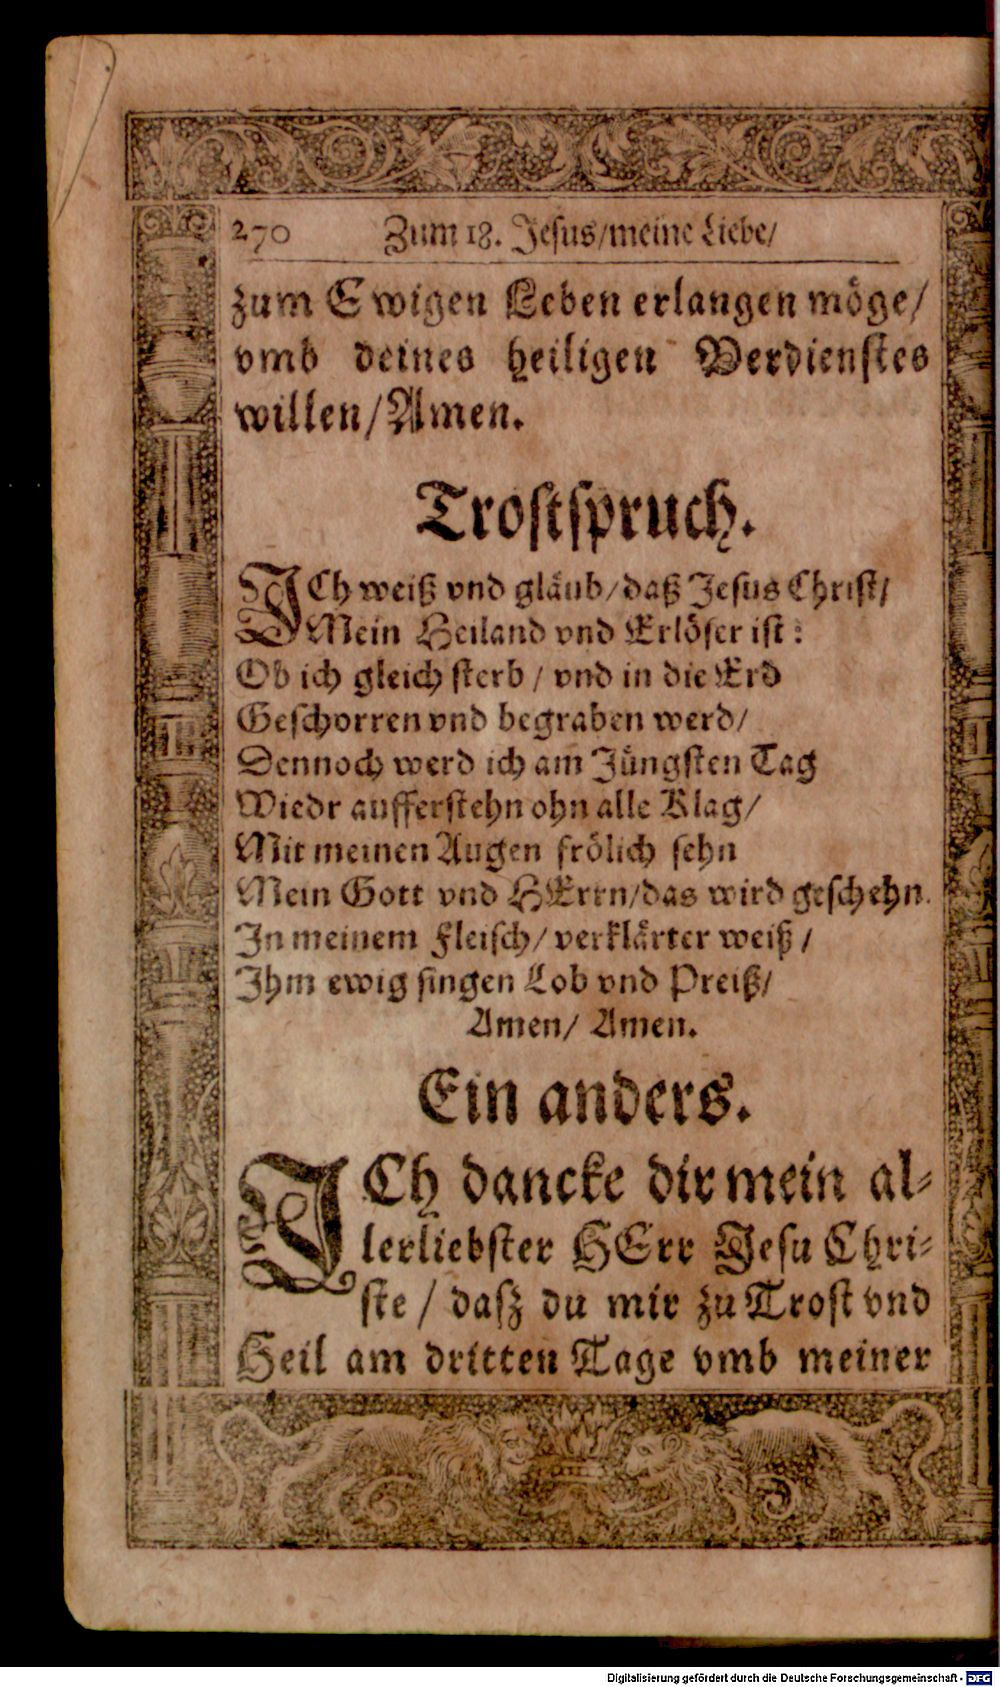 270 Zum 18. Jesus/meine Liebe/
zum Ewigen Leben erlangen möge/
vmb deines heiligen Verdienstes
willen/Amen.
Trostspruch.
ICh weiß vnd gläub/daß Jesus Christ/
Mein Heiland vnd Erlöser ist:
Ob ich gleich sterb / vnd in die Erd
Geschorren vnd begraben werd/
Dennoch werd ich am Jüngsten Tag
Wiedr aufferstehn ohn alle Klag/
Mit meinen Augen frölich sehn
Mein Gott vnd HErrn/das wird geschehn.
In meinem Fleisch/ verklärter weiß /
Ihm ewig singen Lob vnd Preiß/
Amen/ Amen.
Ein anders.
ICh dancke dir mein al-
lerliebster HErr Jesu Chri-
ste / dasz du mir zu Trost vnd
Heil am dritten Tage vmb meiner
Digitalisierung gefördert durch die Deutsche Forschungsgemeinschaft - DFG